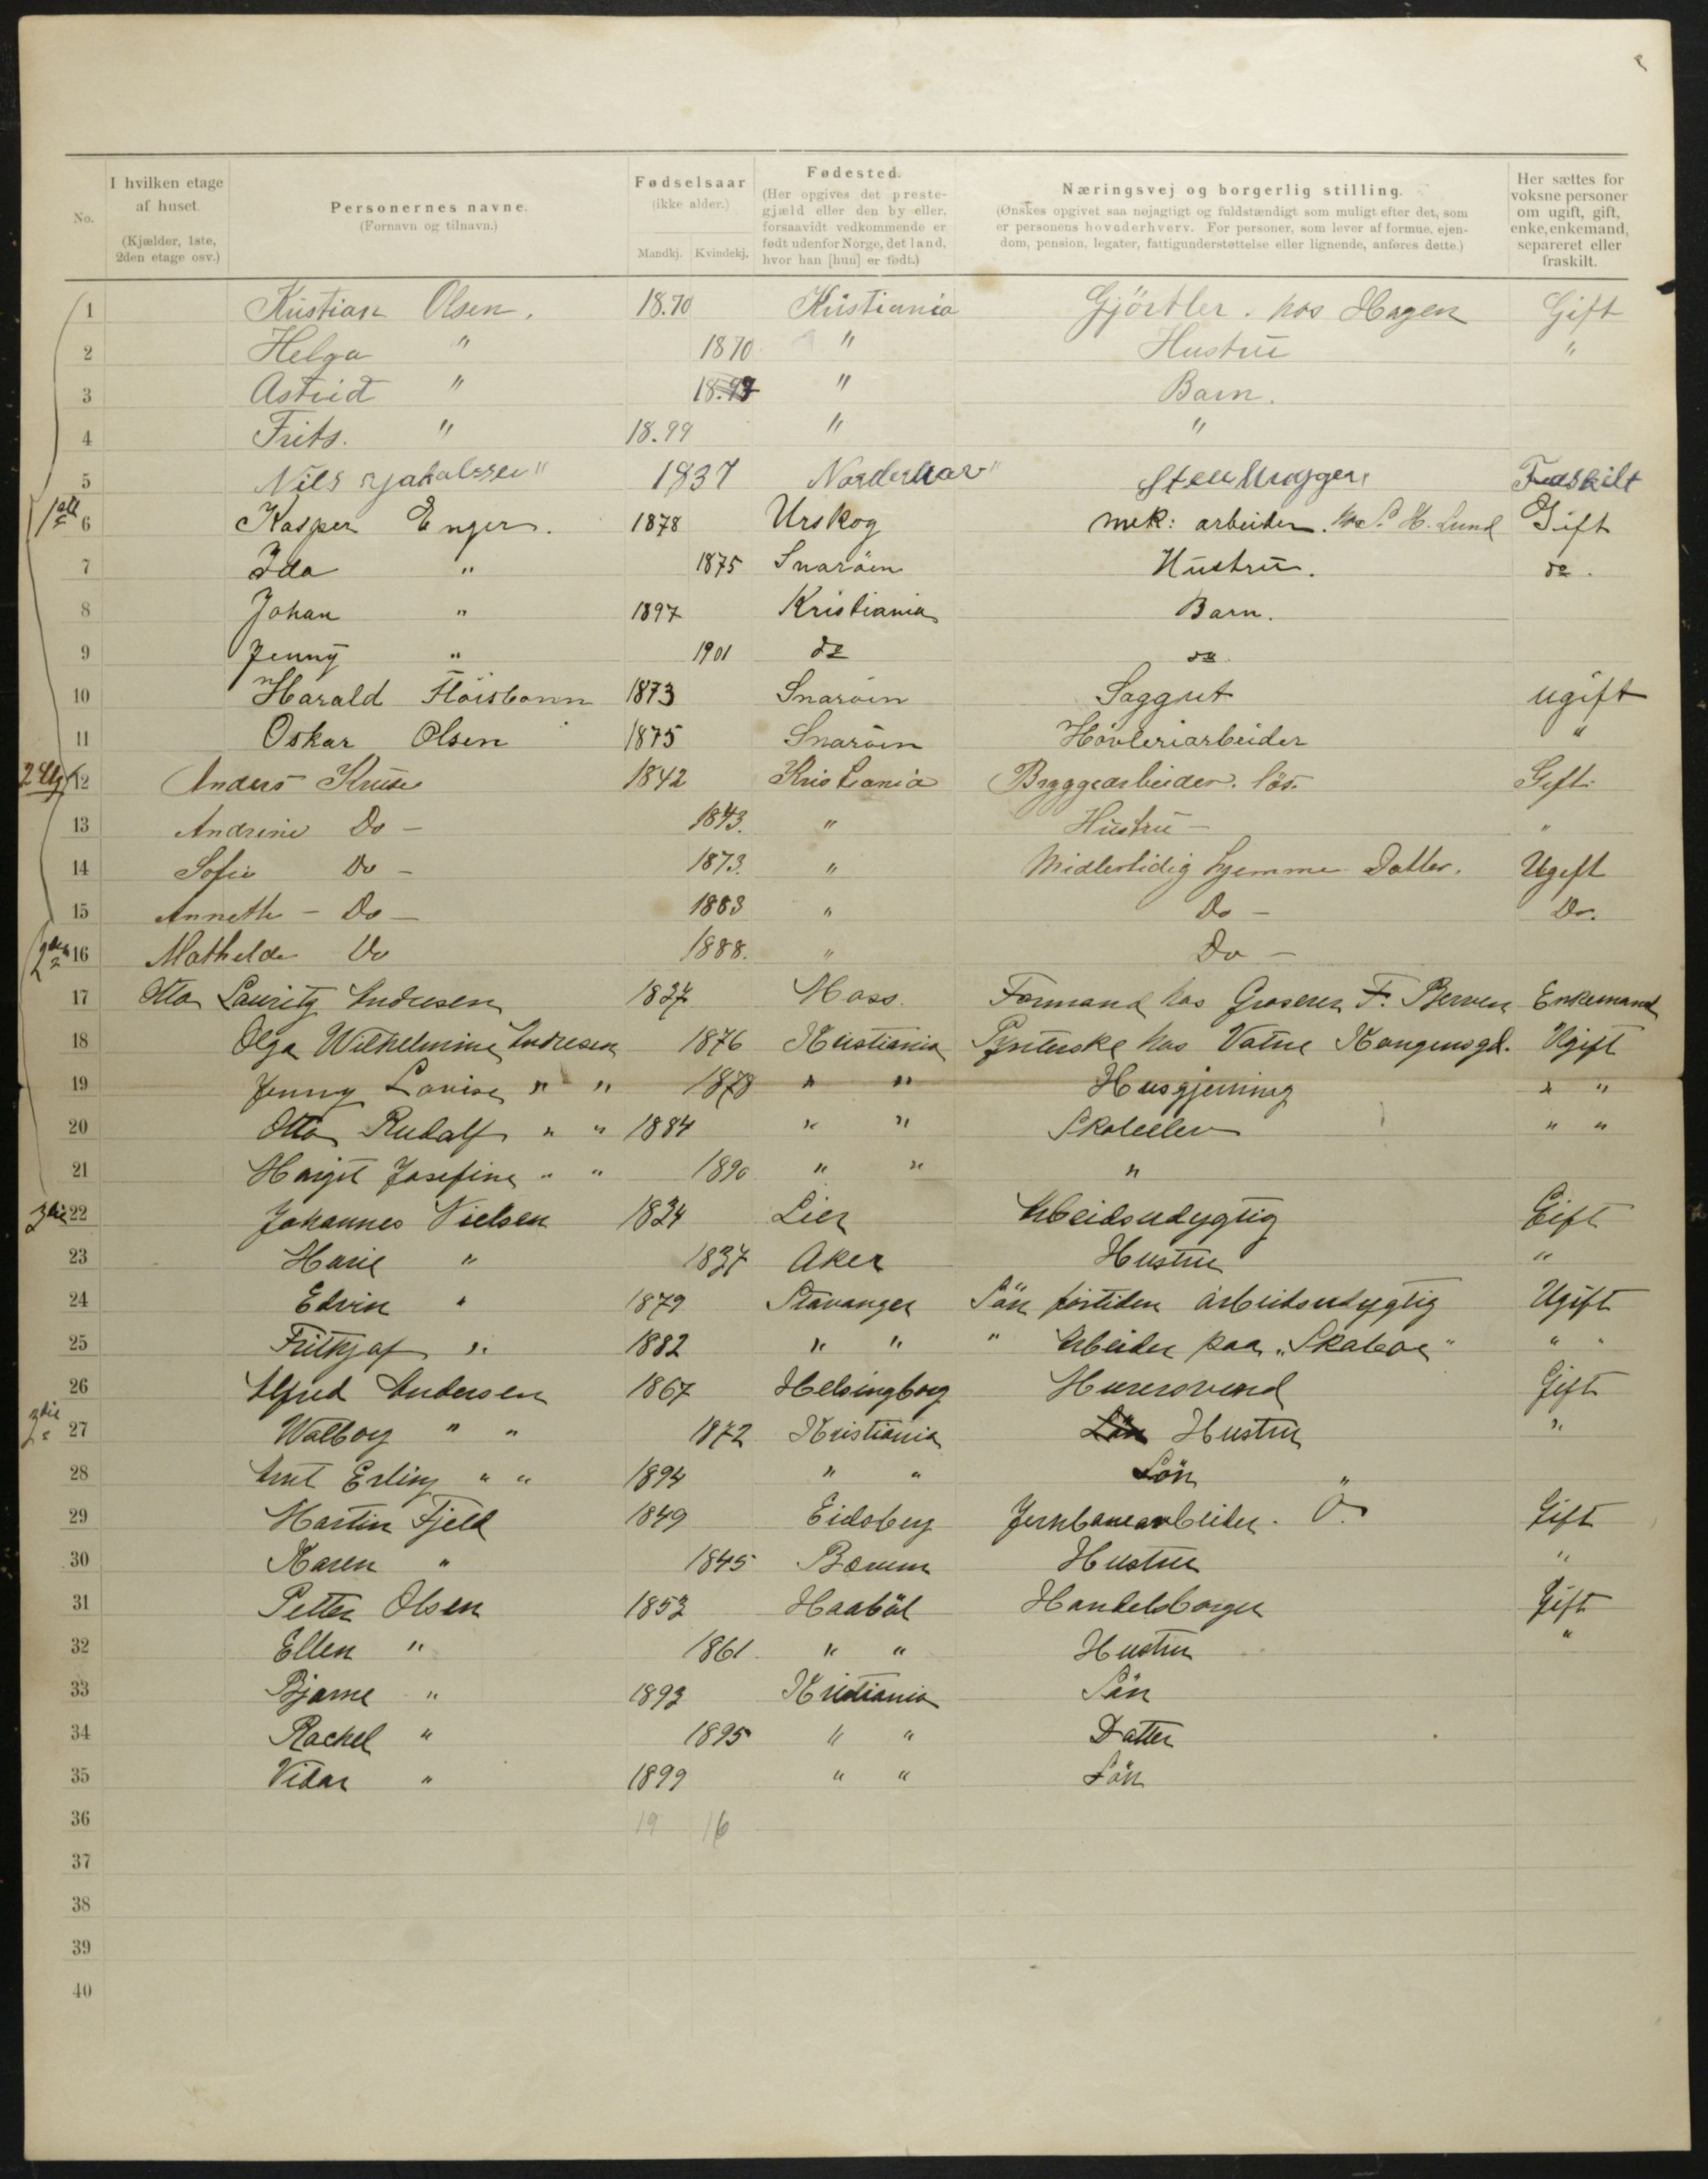 No.
I hvilken etage af huset. (Kjælder, 1ste, 2den etage osv.)
Personernes navne. (Fornavn og tilnavn.)
Fødselsaar (ikke alder.) Mandkj. Kvindekj.
Fødested. (Her opgives det prestegjæld eller den by eller, forsaavidt vedkommende er født udenfor Norge, det land, hvor han [hun] er født.)
Næringsvej og borgerlig stilling. (Ønskes opgivet saa nøjagtigt og fuldstændigt som muligt efter det, som er personens hovederhverv. For personer, som lever af formue, ejendom, pension, legater, fattigunderstøttelse eller lignende, anføres dette.)
Her sættes for voksne personer om ugift, gift, enke, enkemand, separeret eller fraskilt.
1 Kristian Olsen. 18.70 Kristiania Gjörtler. hos Hagen Gift
2 Helga " 1870 " Hustru "
3 Astrid " " Barn.
4 Frits. " 18.99 " "
5 Nils 1837 Stenhugger Fraskilt
6 Kasper Enger. 1878 Urskog mek: arbeider. Lund Gift
7 Ida " 1875 Snaröen Hustru. do.
8 Johan " 1897 Kristiania Barn.
9 Jenny " 1901 do do.
10 Harald Flöisbonn 1873 Snaröen Saggut ugift
11 Oskar Olsen 1875 Snaröen Hövleriarbeider "
12 Anders Kruse 1842 Kristiania Bryggearbeider. lös. Gift
13 Andrine Do - 1843. " Hustru - "
14 Sofie Do - 1873. " Midlertidig hjemme Datter. Ugift
15 Annette - Do - 1883 " Do - Do.
16 Mathelde Do 1888. " Do -
17 Otto Lauritz Andresen 1837 Moss. Formand hos Groserer F. Enkemand
18 Olga Wilhelmine Andresen 1876 Kristiania Pynterske hos Vatne Kongensgd. Ugift
19 Jenny Lovise " " 1878 " " Husgjerning " "
20 Otto Rudolf " " 1884 " " Skoleelev " "
21 Margit Josefine " " 1890 " " "
22 Johannes Nielsen 1834 Lier Arbeidsudygtig Gift
23 Marie " 1837 Aker Hustru "
24 Edvin " 1879 Stavanger Sön fortiden arbeidsudygtig Ugift
25 Frithjof " 1882 " " " Arbeider paa "Skaboe" " "
26 Alfred Andersen 1867 Helsingborg Murersvend Gift
27 Walborg " " 1872 Kristiania Hustru "
28 Arnt Erling " " 1894 " " Sön "
29 Martin Fjeld 1849 Eidsberg Jernbanearbeider. Ö. Gift
30 Karen " 1845 Bærum Hustru "
31 Petter Olsen 1853 Haaböl Handelsborger Gift
32 Ellen " 1861. " " Hustru "
33 Bjarne " 1893 Kristiania Sön
34 Rachel " 1895 " " Datter
35 Vidar " 1899 " " Sön
36 19 16
37
38
39
40